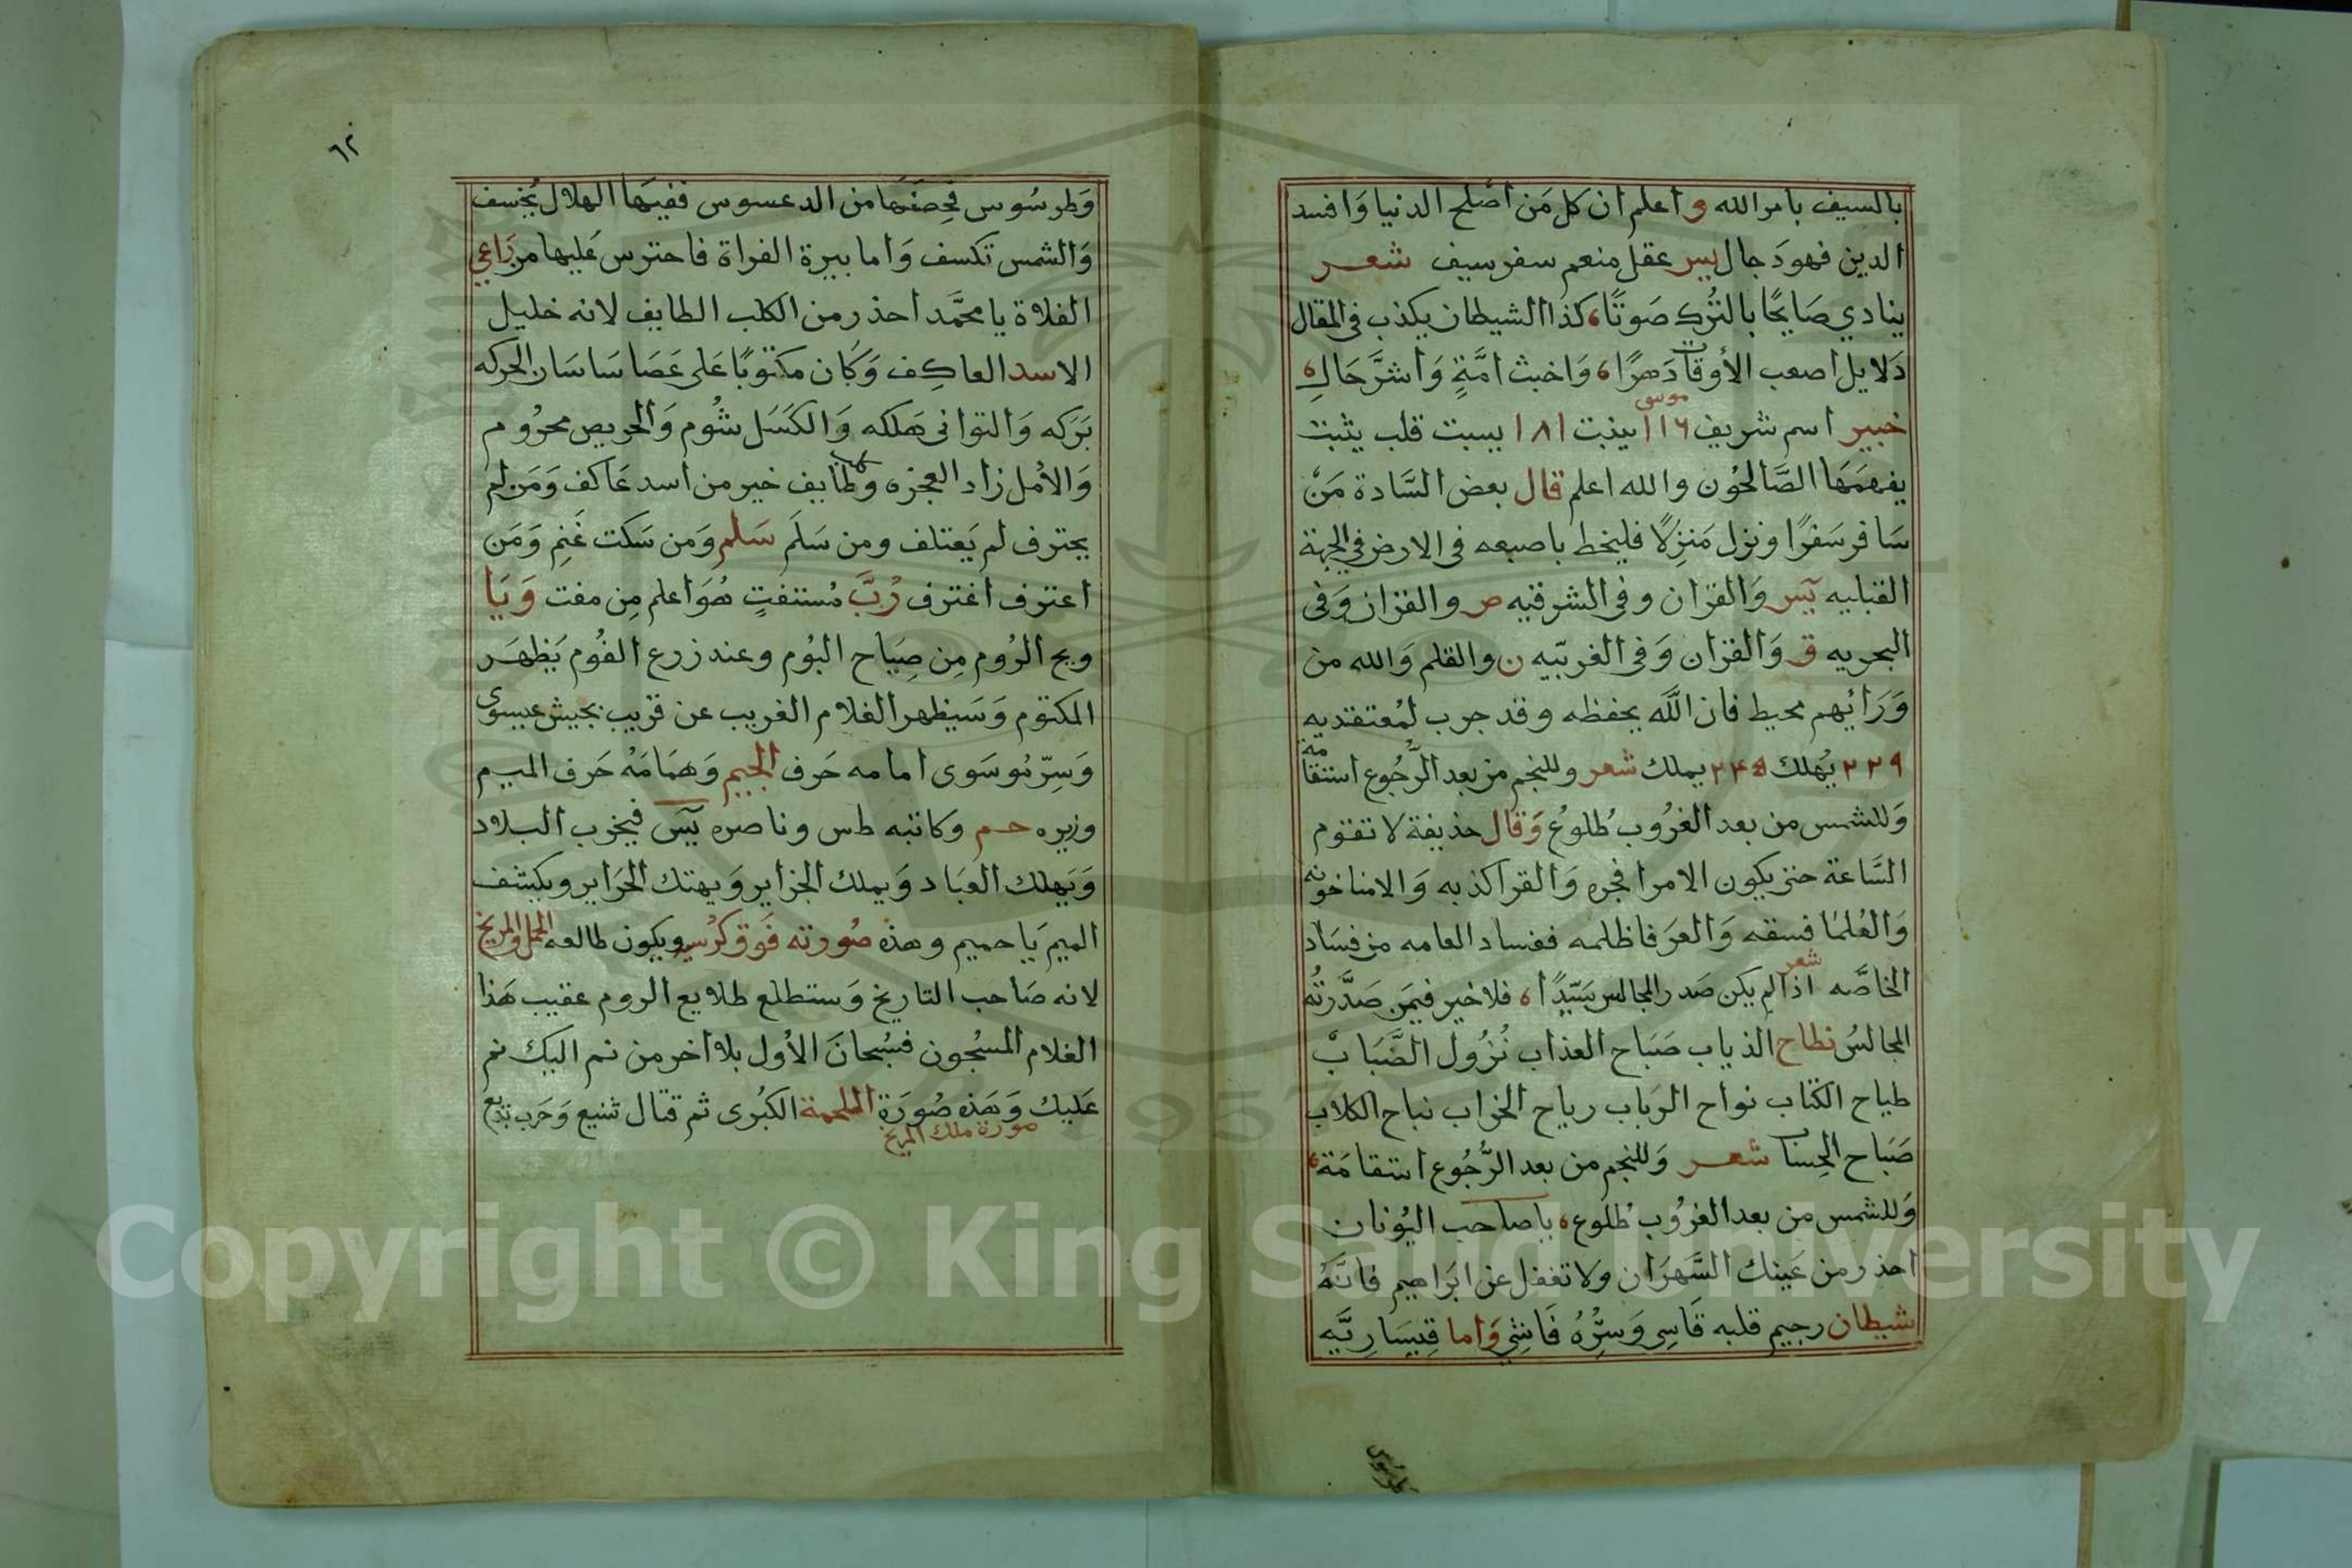 بالسيف بامر الله واعلم ان كل من اصلح الدنيا وافسد
الدين فهو دجال يس عقل منعم سفر سيف شعر
ينادي صايحًا بالترك صوتًا، كذا الشيطان يكذب في المقال
دلايل اصعب الأوقات دهرًا، واخبث امّةٍ واشرّ حال،
موسى
خبير اسم شريف ١١٦ ينبت ١٨١ يسبت قلب يثبت
يفهمها الصّالحُون والله اعلم قال بعض السّادة مَنْ
سَافر سَفرًا ونزل مَنزِلًا فليخط باصبعه في الارض في الجهة
القبليه يس وَالقران وفي الشرقيه ص والقران وَفي
البحريه ق وَالقران وَفي الغربيّه ن والقلم وَالله من
وَرَائِهم محيط فان اللّه يحفظه وقد جرب لمُعتقديه
٢٢٩ يُهلك ٢٤٥ يملك شعر وللنجم من بعد الرّجُوع استقامة
وَللشمس من بعد الغرُوب طُلوعُ وَقال حذيفة لا تقوم
السَّاعة حتى يكون الامرا فجره وَالقرا كذبه وَالامنا خونه
وَالعُلمَا فسقه وَالعرَفا ظلمه ففساد العامه من فسَاد
الخاصَّه شعر اذا لم يكن صَدر المجالس سَيّدًا، فلا خير فيمَن صَدَّرتُه
المجالسُ نطاح الذياب صَبَاح العذاب نُزُول الضَّبَابْ
طياح الكتاب نواح الرَباب رياح الخراب نباح الكلاب
صَبَاح الحِساب شعر وَللنجم من بعد الرُّجُوع استقامَة،
وَللشمس من بعد الغرُوب طُلوع، ياصاحب اليُونان
احذر من عَينك السَّهرَان ولا تغفل عن ابرَاهيم فانَّهُ
شيطان رجيم قلبه قَاسِي وَسِرُّهُ فَاشِي وَاما قِيسَارِيَّه
وطرسوس
٦٢
وَطرسُوس فحِصنهَا من الدعسوس ففيهَا الهلال يُخسف
وَالشمس تكسف وَاما بيرة الفراة فاحترس عَليها من رَاعي
الفلاة يا محمَّد احذر من الكلب الطايف لانه خليل
الاسد العاكِف وَكان مكتوبًا عَلى عَصَا سَاسَان الحركه
بَركه وَالتوانى هَلكه وَالكَسَل شُوم وَالحريص محرُوم
وَالأمل زاد العجزه وكلب طايف خير من اسد عَاكف وَمَن لم
يحترف لم يَعتلف ومن سَلَم سَلم وَمن سَكت غَنِم وَمَن
اعترف اغترف رُبَّ مُستفتٍ هُوَ اعلم مِن مفت وَيَا
ويح الرُوم مِن صِيَاح البُوم وعند زرع الفُوم يَظهَر
المكتوم وَسَيظهر الغلام الغريب عن قريب بجيش عيسوى
وَسِرّ مُوسَوى امامه حَرف الجيم وَهمَامَهُ حَرف الميم
وزيره حم وكاتبه طس وناصره يس فيخرب البلاد
وَيَهلك العبَاد وَيملك الجزاير وَيهتك الحَراير ويكشف
الميم يَا حميم وهذه صُورته فَوق كرُسي ويكون طالعه الحمل والمريخ
لانه صَاحب التاريخ وَستطلع طلايع الروم عقيب هَذا
الغلام المسجُون فسُبحانَ الأول بلا اخر من نم اليك نم
عَليك وَهَذه صُورَة الملحمة الكبُرى ثم قتال شنيع وَحَرب بديع
صورة ملك المريخ
Copyright © King Saud University
1957